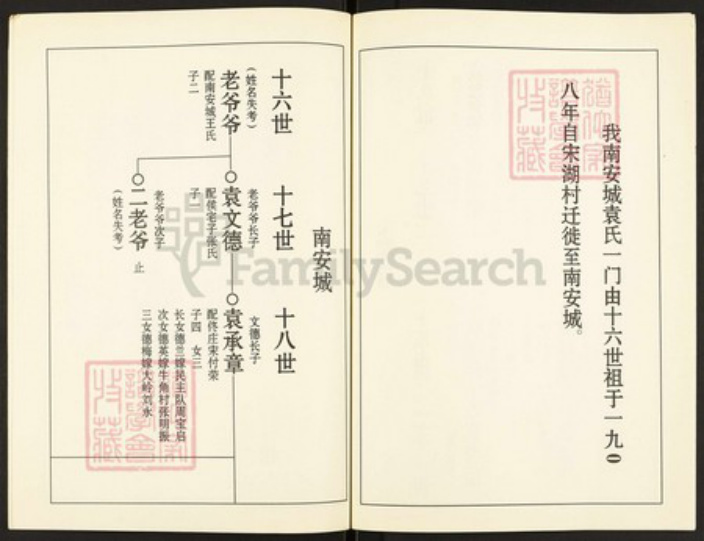 我南安城袁氏一门由十六世祖于一九0
八年自宋湖村迁徙至南安城。
南安城
十六世
(姓名失考)
老爷爷
配南安城王氏
子二
十七世
老爷爷长子
袁文德
配侯宅子张氏
子一
老爷爷次子
二老爷
止
(姓名失考)
十八世
文德长子
袁承章
配佟庄宋付荣
子四 女三
长女德兰嫁民主队周宝启
次女德英嫁牛角村张明振
三女德梅嫁大岭刘永
FamilySearch